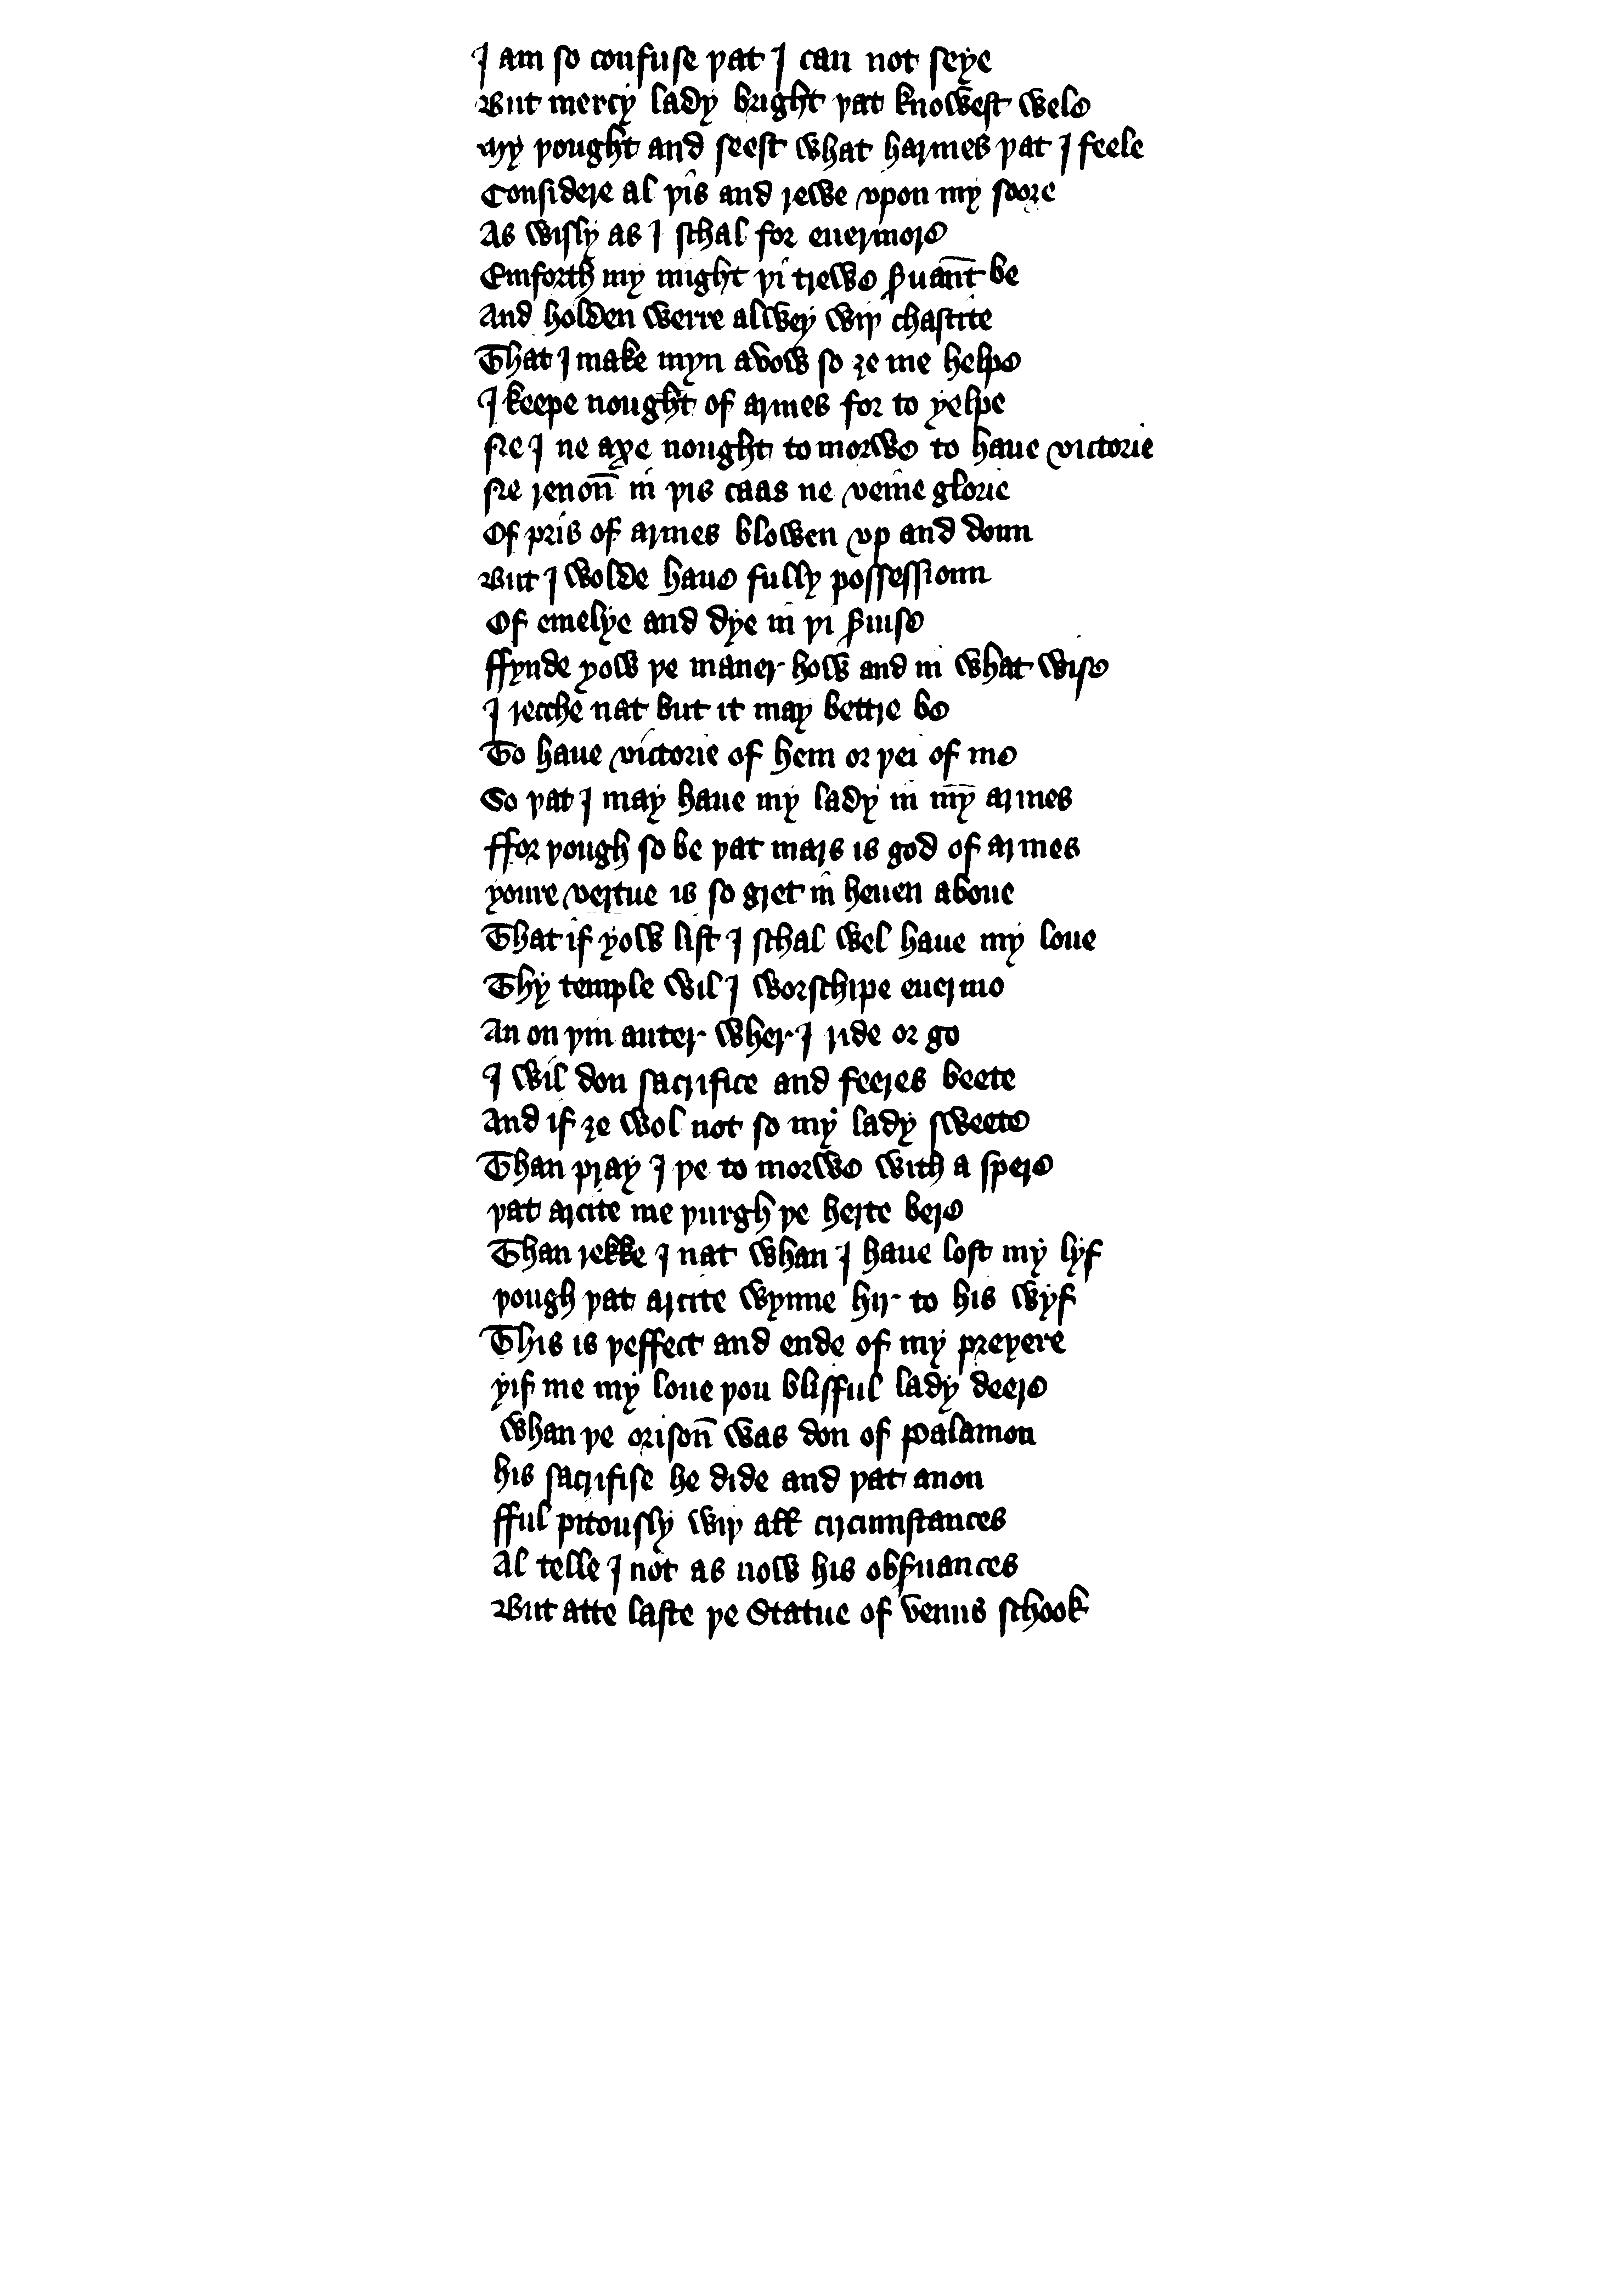 I am so confuse þat I can not seye
But mercy lady bright þat knowest wele
My þought and seest what harmes þat I feele
Considere al þis and rewe vpon my soore
As wisly as I schal for euermore
Emforth my might þi trewe ꝑuant be
And holden werre alwey wiþ chastite
That I make myn avow so ȝe me helpe
I keepe nought of armes for to yelpe
Ne I ne axe nought to morwe to haue victorie
Ne renon̅ in þis caas ne veine glorie
Of pris of armes blowen vp and doun
But I wolde haue fully possessioun
Of emelye and dye in þi ꝑuise
ffynde yow þe maner how and in what wise
I recche nat but it may bettre be
To haue victorie of hem or þei of me
So þat I may haue my lady in my̅ armes
ffor þough so be þat mars is god of armes
youre vertue is so gret in heuen aboue
That if yow list I schal wel haue my loue
Thy temple wil I worschipe euermo
An on þin auter wher I ride or go
I wil don sacrifice and feeres beete
And if ȝe wol not so my lady sweete
Than pray I þe to morwe with a spere
þat arcite me þurgh þe herte bere
Than rekke I nat whan I haue lost my lyf
þough þat arcite wynne hir to his wyf
This is þeffect and ende of my preyere
yif me my loue þou blisful lady deere
Whan þe orison̅ was don of Palamon
his sacrifise he dide and þat anon
fful pitously wiþ all circumstances
Al telle I not as now his obꝑuances
But atte laste þe Statue of venus schook